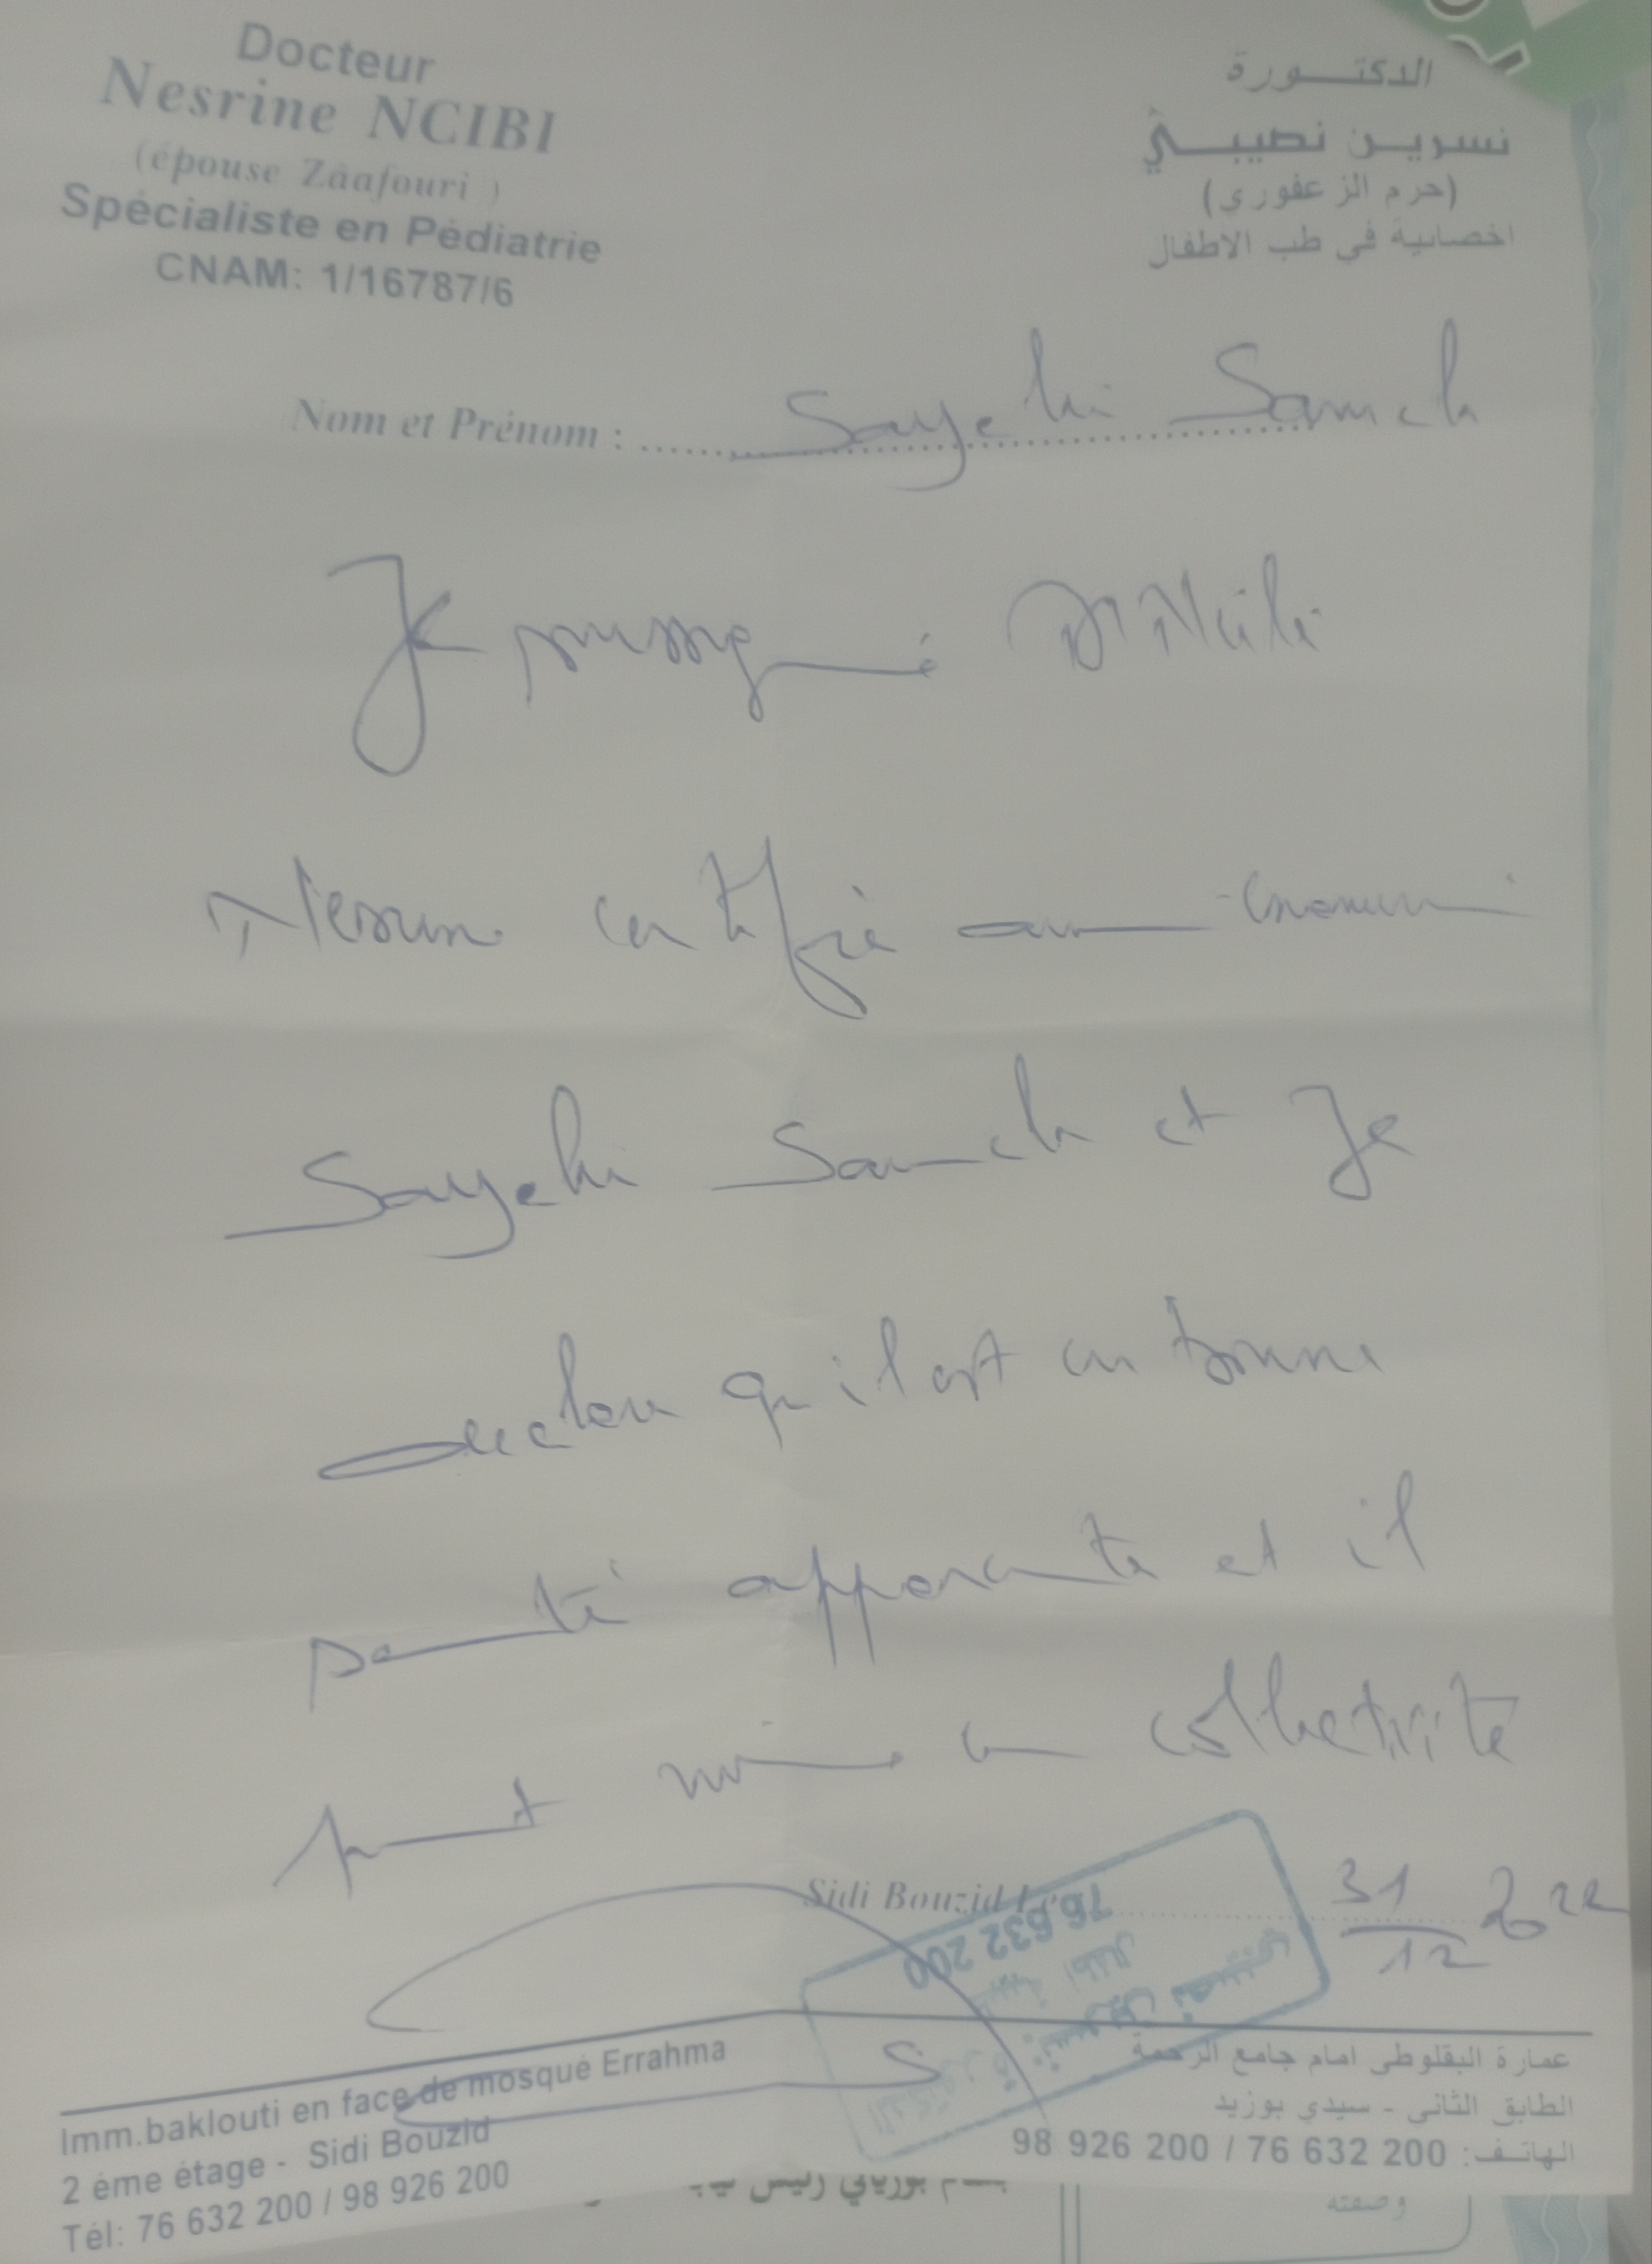 Docteur
Nesrine NCIBI
(épouse Zâafouri )
Spécialiste en Pédiatrie
CNAM: 1/16787/6
الدكتـــورة
نسريـن نصيبـــي
(حرم الز عفوري)
اخصائية في طب الاطفال
Nom et Prénom : Sayehi Sameh
Je soussigné Dr Ncibi
Nesrine certifie avoir examiné
Sayehi Sameh et Je
déclare qu'il est en bonne
santé apparente et il
peut vivre en collectivité
Sidi Bouzid Le 31/12 2022
76 632 200
Imm.baklouti en face de mosqué Errahma
2 éme étage - Sidi Bouzid
Tél: 76 632 200 / 98 926 200
عمارة البقلوطي أمام جامع الرحمة
الطابق الثاني - سيدي بوزيد
الهاتـف: 200 632 76 / 200 926 98
وصفته